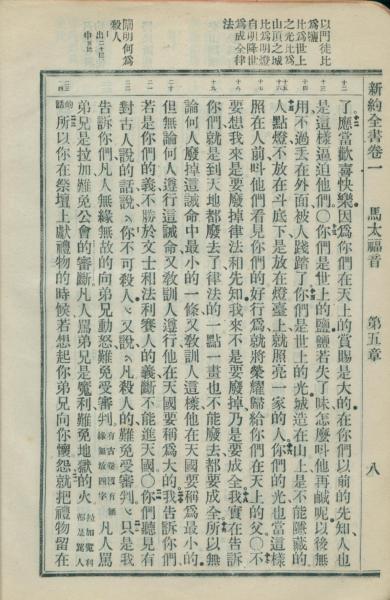 新約全書卷一 馬太福音 第五章 八
以門徒比
爲鹽
比爲世上
之光比爲
山頂之城
比爲明燈
自明降世
爲成全律
法
闡明何爲
殺人
了應當歡喜快樂因爲你們在天上的賞賜是大的在你們以前的先知人也
是這樣逼迫他們〇你們是世上的鹽鹽若失了味怎麼呌他再鹹呢以後無
用不過丟在外面被人踐踏了你們是世上的光城造在山上是不能隱藏的
人點燈不放在斗底下是放在燈臺上就照亮一家的人你們的光也當這樣
照在人前呌他們看見你們的好行爲就將榮耀歸給你們在天上的父〇不
要想我來是要廢掉律法和先知我來不是要廢掉乃是要成全我實在告訴
你們就是到天地都廢去了律法的一點一畫也不能廢去都要成全所以無
論何人廢掉這誡命中最小的一條又敎訓人這樣他在天國要稱爲最小的
但無論何人遵行這誡命又敎訓人遵行他在天國要稱爲大的我告訴你們
若是你們的義不勝於文士和法利賽人的義斷不能進天國〇你們聽見有
對古人說的話說你不可殺人又說凡殺人的難免受審判只是我
告訴你們凡人無緣無故的向弟兄動怒難免受審判有古卷沒有無緣無故四字凡人罵
弟兄是拉加難免公會的審斷凡人罵弟兄是魔利難免地獄的火拉加魔利都是罵人
的話所以你在祭壇上獻禮物的時候若想起你弟兄向你懷怨就把禮物留在